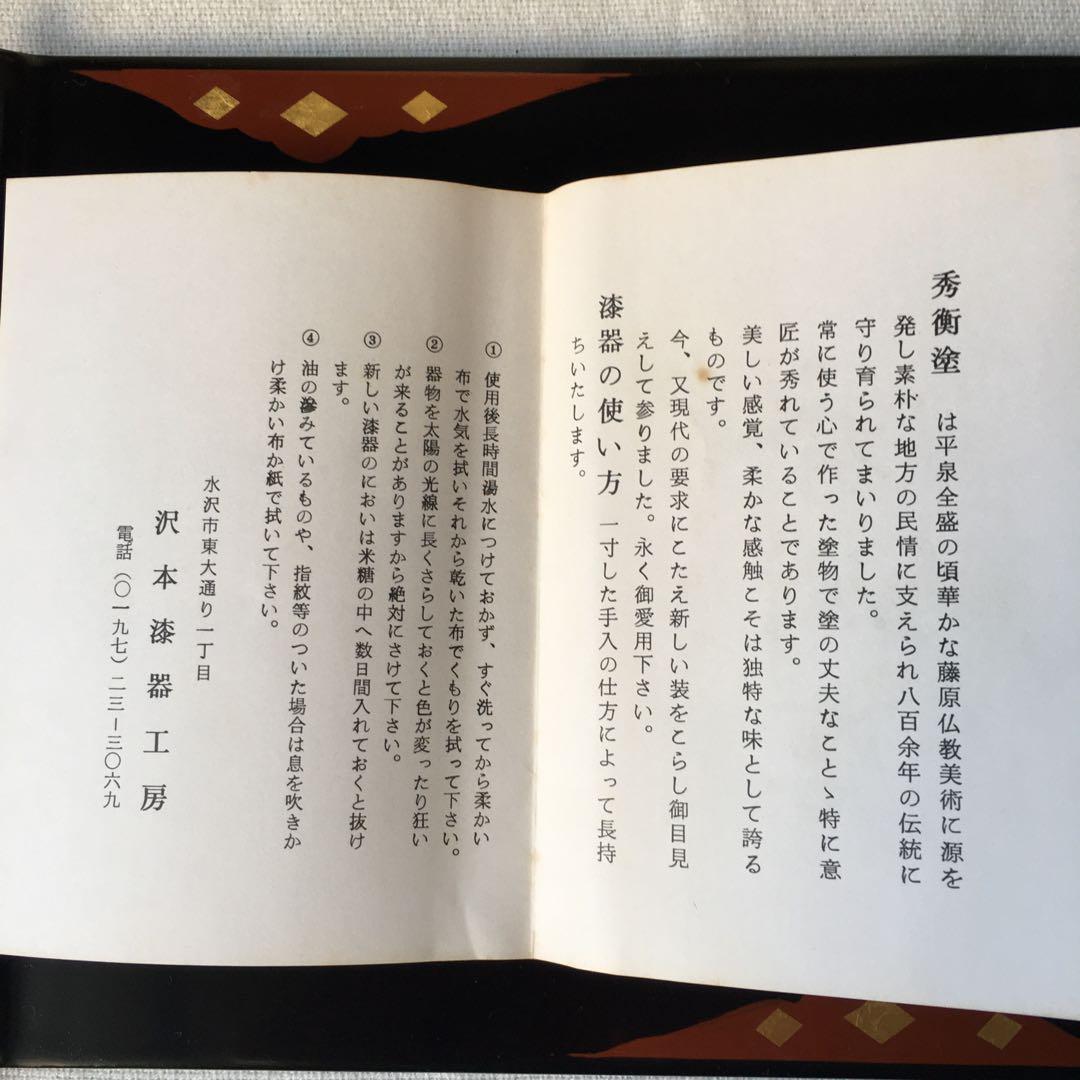 秀衡塗 は平泉全盛の頃華かな藤原仏教美術に源を
発し素朴な地方の民情に支えられ八百余年の伝統に
守り育られてまいりました。
常に使う心で作った塗物で塗の丈夫なことゝ特に意
匠が秀れていることであります。
美しい感覚、柔かな感触こそは独特な味として誇る
ものです。
今、又現代の要求にこたえ新しい装をこらし御目見
えして参りました。永く御愛用下さい。
漆器の使い方 一寸した手入の仕方によって長持
ちいたします。
① 使用後長時間湯水につけておかず、すぐ洗ってから柔かい
布で水気を拭いそれから乾いた布でくもりを拭って下さい。
② 器物を太陽の光線に長くさらしておくと色が変ったり狂い
が来ることがありますから絶対にさけて下さい。
③ 新しい漆器のにおいは米糖の中へ数日間入れておくと抜け
ます。
④ 油の滲みているものや、指紋等のついた場合は息を吹きか
け柔かい布か紙で拭いて下さい。
水沢市東大通り一丁目
沢本漆器工房
電話(〇一九七)二三-三〇六九